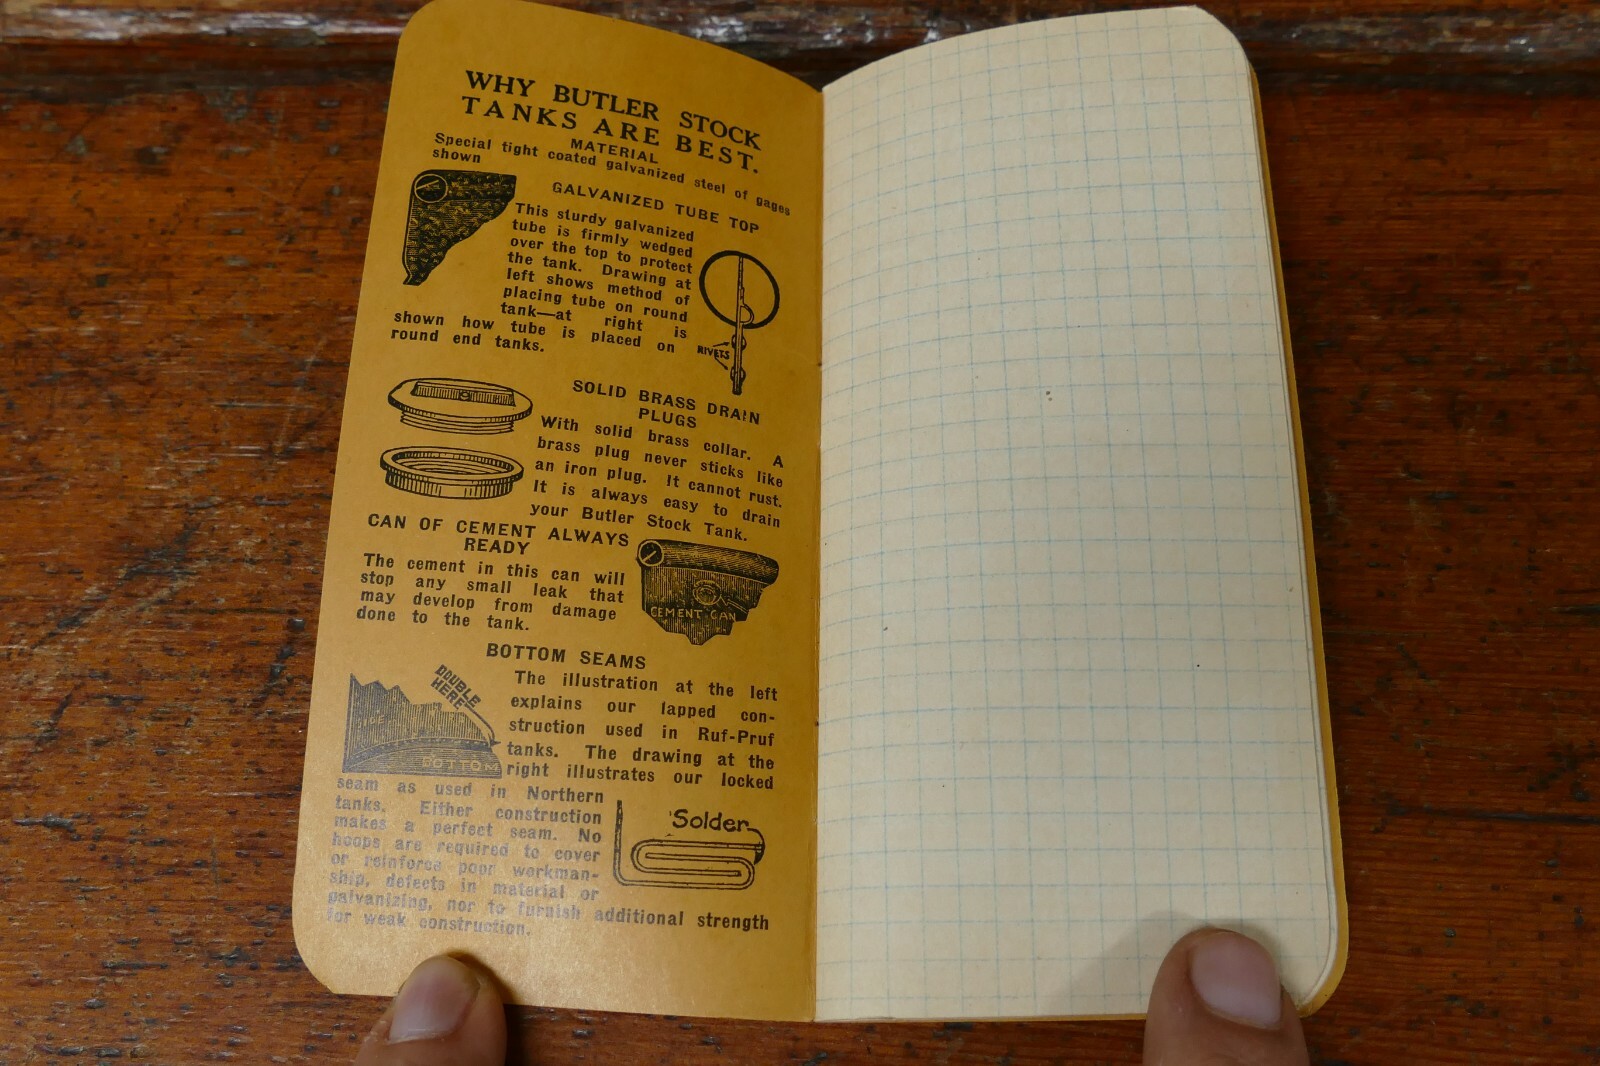 WHY BUTLER STOCK
TANKS ARE BEST.
MATERIAL
Special tight coated galvanized steel of gages
shown
GALVANIZED TUBE TOP
This sturdy galvanized
tube is firmly wedged
over the top to protect
the tank. Drawing at
left shows method of
placing tube on round
tank—at right is
shown how tube is placed on
round end tanks.
RIVETS
SOLID BRASS DRAIN
PLUGS
With solid brass collar. A
brass plug never sticks like
an iron plug. It cannot rust.
It is always easy to drain
your Butler Stock Tank.
CAN OF CEMENT ALWAYS
READY
The cement in this can will
stop any small leak that
may develop from damage
done to the tank.
CEMENT CAN
BOTTOM SEAMS
DOUBLE
HERE
SIDE
BOTTOM
The illustration at the left
explains our lapped con-
struction used in Ruf-Pruf
tanks. The drawing at the
right illustrates our locked
seam as used in Northern
tanks. Either construction
makes a perfect seam. No
hoops are required to cover
or reinforce poor workman-
ship, defects in material or
galvanizing, nor to furnish additional strength
for weak construction.
Solder